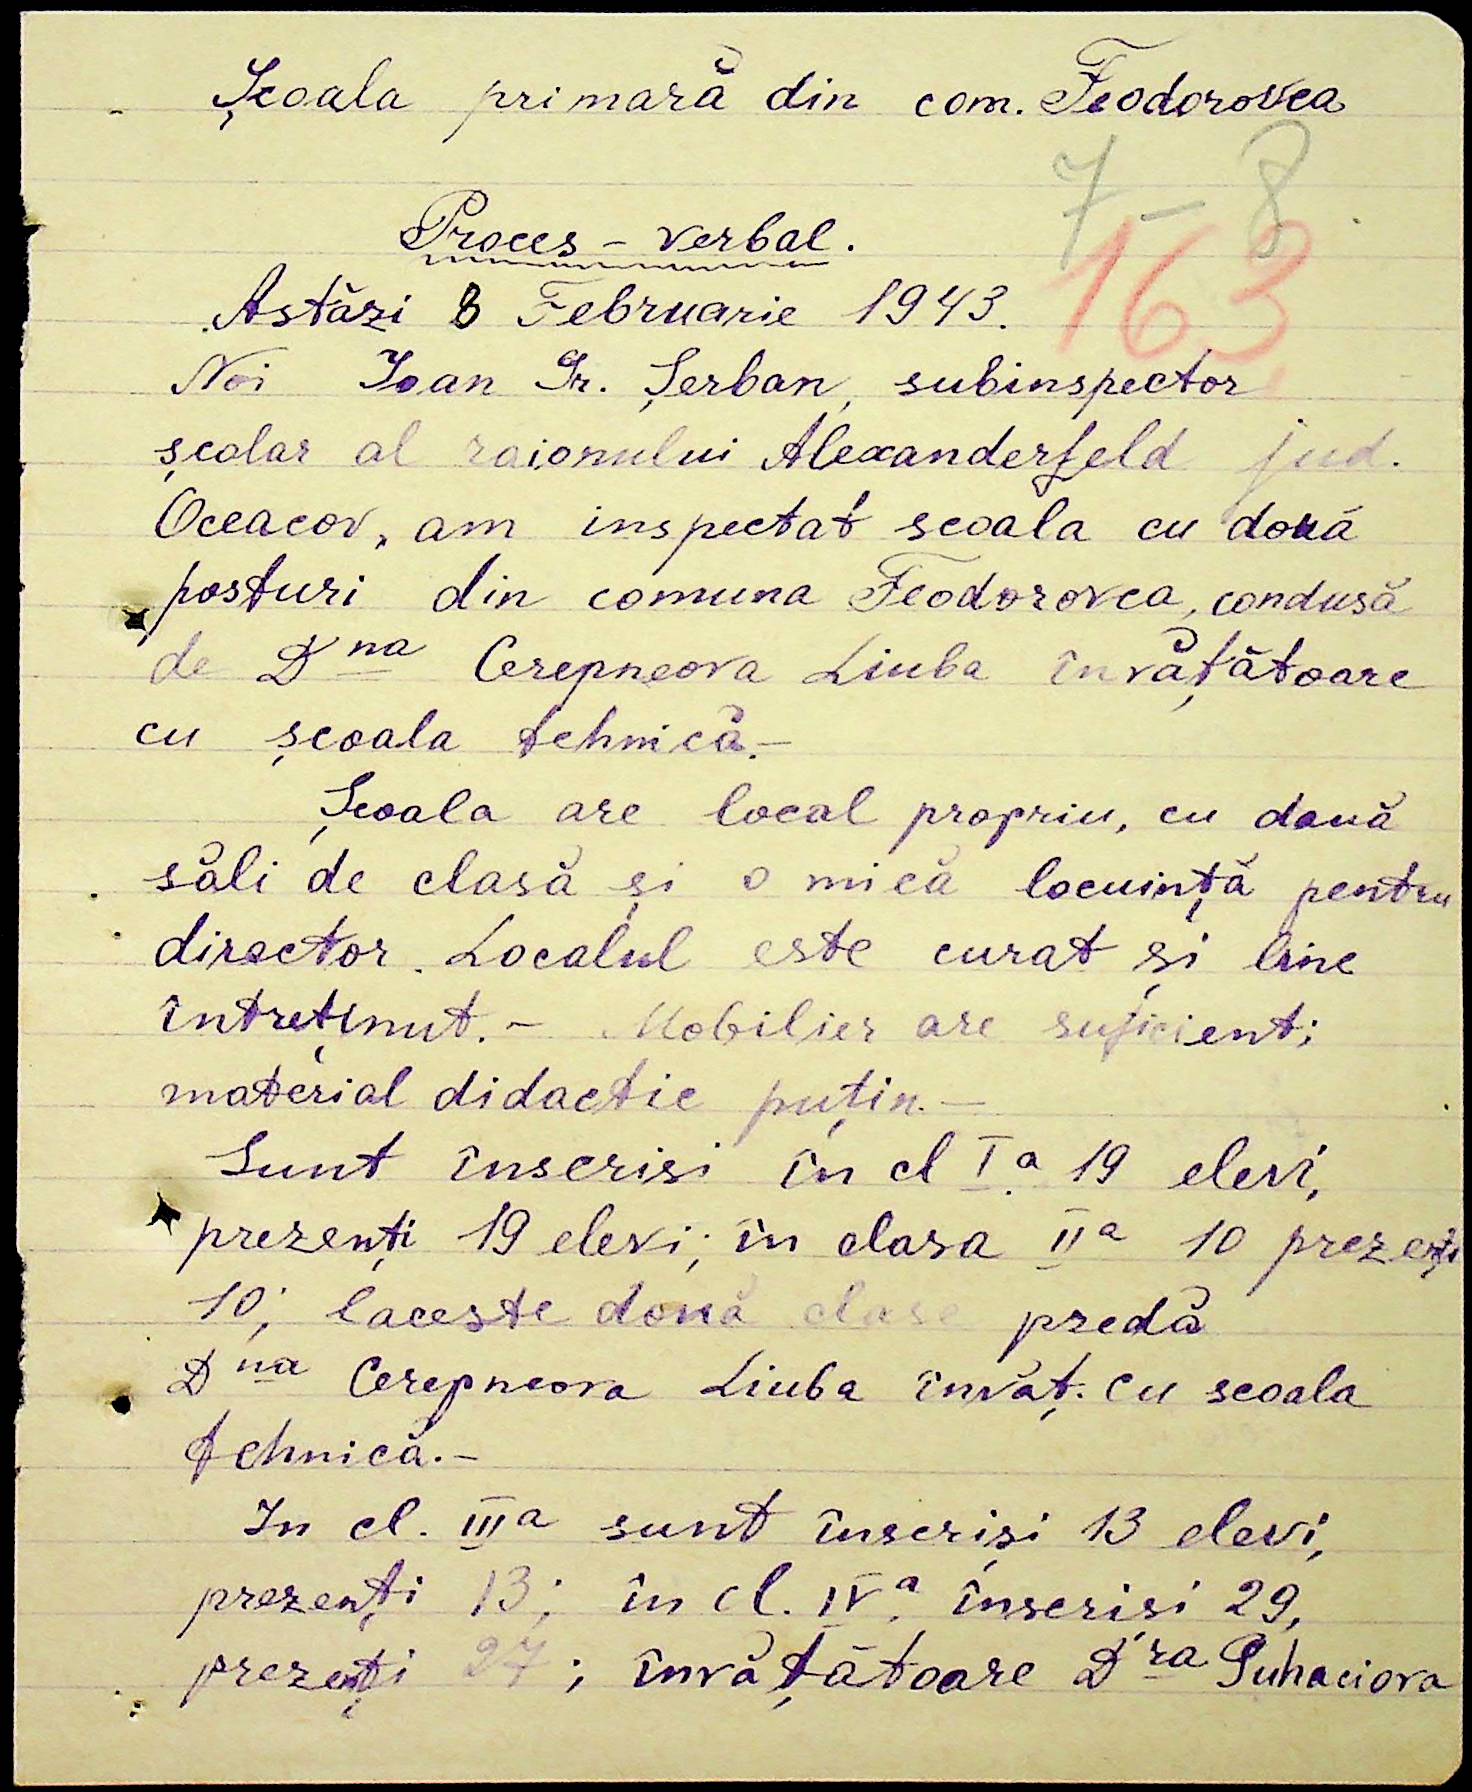 Școala primară din com. Feodorovca
7 – 8
163
Proces – verbal.
Astăzi 8 Februarie 1943.
Noi Ioan Gr. Șerban, subinspector
școlar al raionului Alexanderfeld jud.
Oceacov, am inspectat scoala cu două
posturi din comuna Feodorovca, condusă
de Dna Cerepneova Liuba învățătoare
cu școala tehnică.–
Școala are local propriu, cu două
săli de clasă și o mică locuință pentru
director. Localul este curat și bine
întreținut. – Mobilier are suficient;
material didactic puțin.–
Sunt înscrisi în cl I.a 19 elevi,
prezenți 19 elevi; în clasa IIa 10 prezenți
10; laceste două clase predă
Dna Cerepneova Liuba învăț. cu scoala
tehnică.–
In cl. IIIa sunt înscriși 13 elevi,
prezenți 13; în cl. IVa. înscrisi 29,
prezenți 27; învățătoare Dra Suhaciova